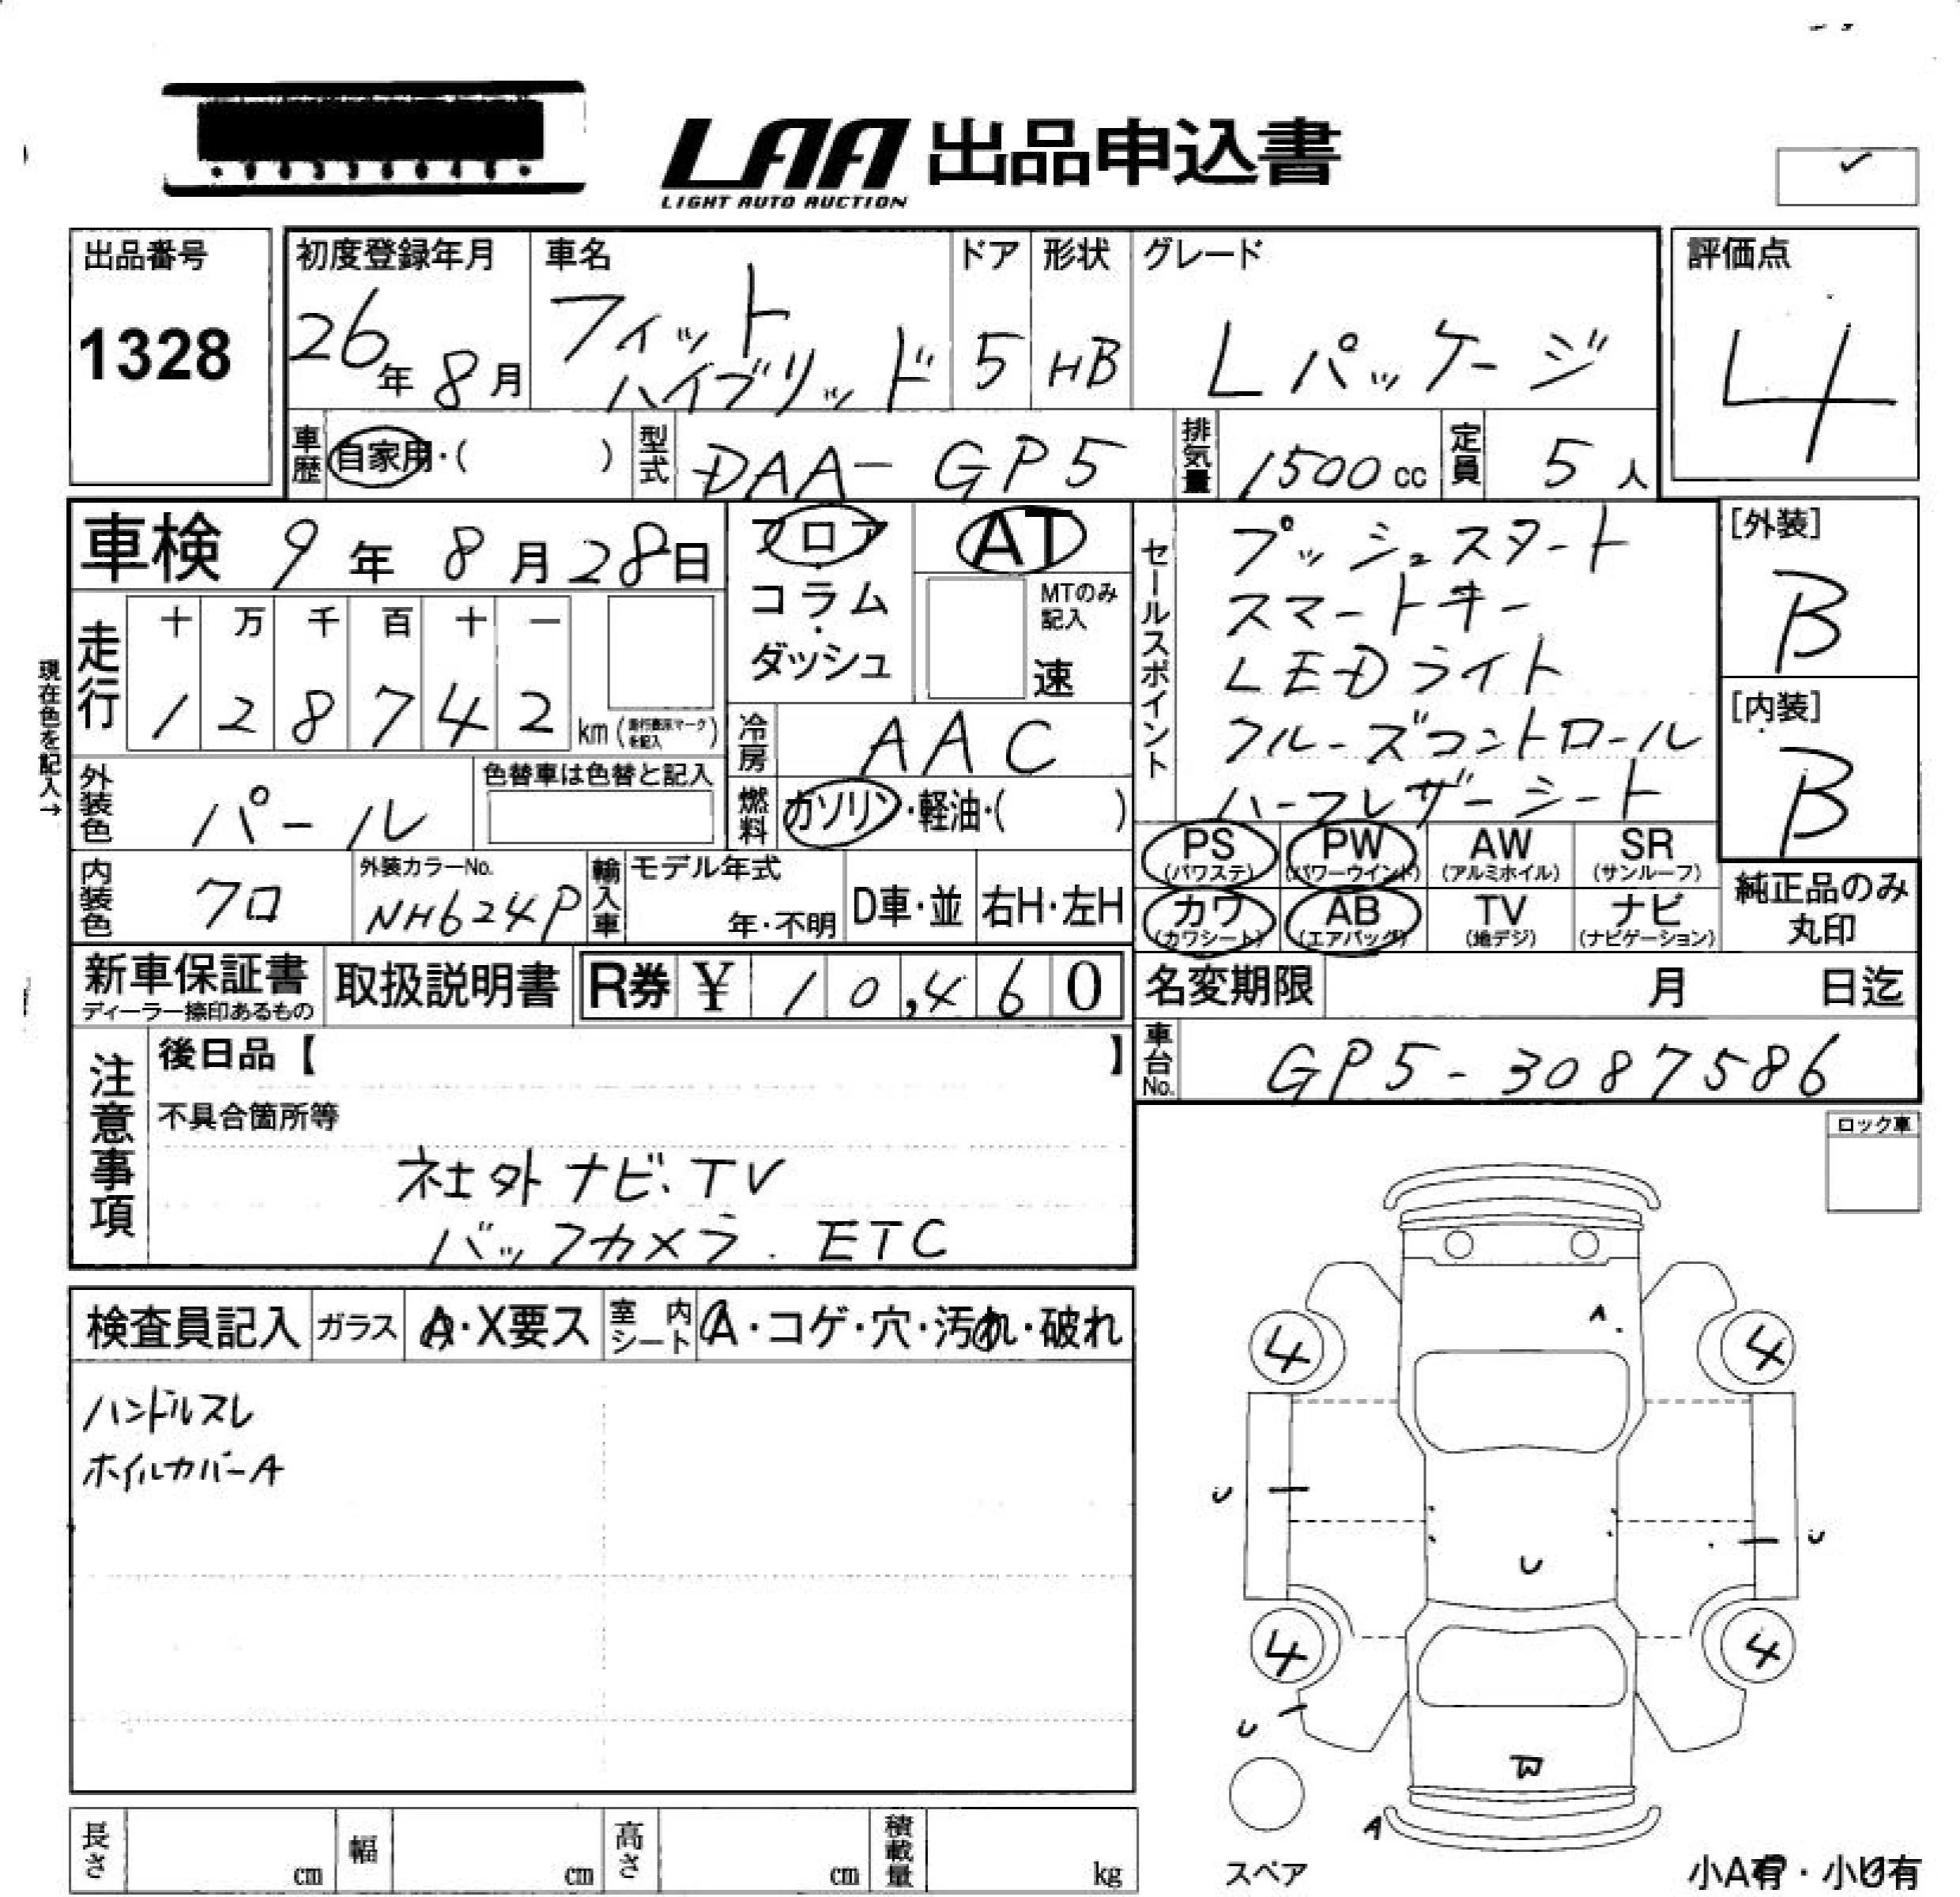 LAA 出品申込書
LIGHT AUTO AUCTION
出品番号
1328
初度登録年月
26年8月
車名
フィット
ハイブリッド
ドア
5
形状
HB
グレード
Lパッケージ
評価点
4
車歴
自家用・( )
型式
DAA-GP5
排気量
1500cc
定員
5人
車検 9年8月28日
フロア
コラム
・
ダッシュ
AT
MTのみ
記入
速
セールスポイント
プッシュスタート
スマートキー
LEDライト
クルーズコントロール
ハーフレザーシート
[外装]
B
[内装]
B
現在色を記入→
走行
十 万 千 百 十 一
1 2 8 7 4 2 km
冷房
AAC
外装色
パール
色替車は色替と記入
燃料
ガソリン・軽油・( )
PS
(パワステ)
PW
(パワーウインド)
AW
(アルミホイル)
SR
(サンルーフ)
カワ
(カワシート)
AB
(エアバッグ)
TV
(地デジ)
ナビ
(ナビゲーション)
純正品のみ
丸印
内装色
クロ
外装カラーNo.
NH624P
輸入車
モデル年式
年・不明
D車・並
右H・左H
新車保証書
ディーラー捺印あるもの
取扱説明書
R券 ¥ 10,460
名変期限 月 日迄
車台No.
GP5-3087586
注意事項
後日品【 】
不具合箇所等
社外ナビ、TV
バックカメラ. ETC
ロック車
検査員記入
ガラス
A・X要ス
室内
シート
A・コゲ・穴・汚れ・破れ
ハンドルスレ
ホイルカバーA
A
4 4
U
U
U
4 4
U
W
A
スペア
小A有・小U有
長さ cm
幅 cm
高さ cm
積載量 kg